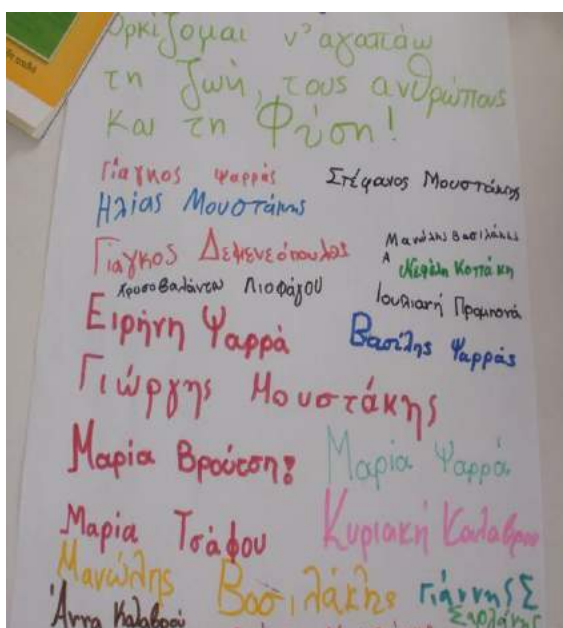 Ορκίζομαι ν' αγαπάω
τη ζωή, τους ανθρώπους
και τη Φύση!
Γιάγκος Ψαρράς Στέφανος Μουστάκης
Ηλίας Μουστάκης
Μανώλης Βασιλάκης
Γιάγκος Δεμενεόπουλος
Α Νεφέλη Κοττάκη
Χρυσοβαλάντω Λιοφάγου Ιουλιανή
Ειρήνη Ψαρρά Βασίλης Ψαρράς
Γιώργης Μουστάκης
Μαρία Βρούτση! Μαρία Ψαρρά
Μαρία Τσάφου Κυριακή
Μανώλης Βασιλάκης Γιάννης Σ
Άννα Καλαβρού